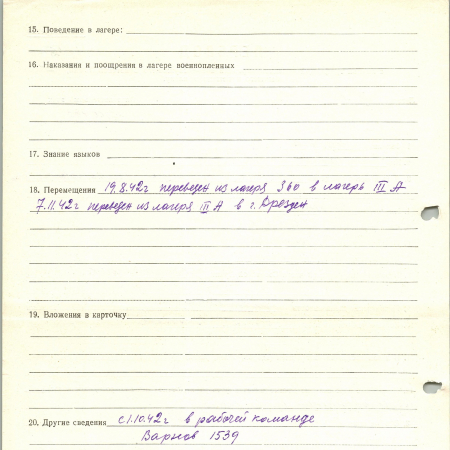 15. Поведение в лагере:
16. Наказания и поощрения в лагере военнопленных
17. Знание языков
18. Перемещения 19.8.42г переведен из лагеря 360 в лагерь III А
7.11.42г переведен из лагеря III А в г. Дрезден
19. Вложения в карточку
20. Другие сведения с 1.10.42г в рабочей команде
Варнов 1539